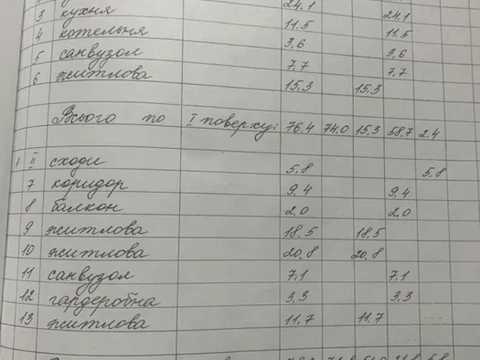 3 кухня 24,1 24,1
4 котельня 11.5 11.5
5 санвузол 3,6 3,6
6 житлова 7.7 7.7
15,3 15,3
Всього по І поверху: 76,4 74,0 15,3 58,7 2,4
ІІ сходи 5,8 5,8
7 коридор 9,4 9,4
8 балкон 2,0 2,0
9 житлова 18,5 18,5
10 житлова 20,8 20,8
11 санвузол 7,1 7,1
12 гардеробна 3,3 3,3
13 житлова 11,7 11,7